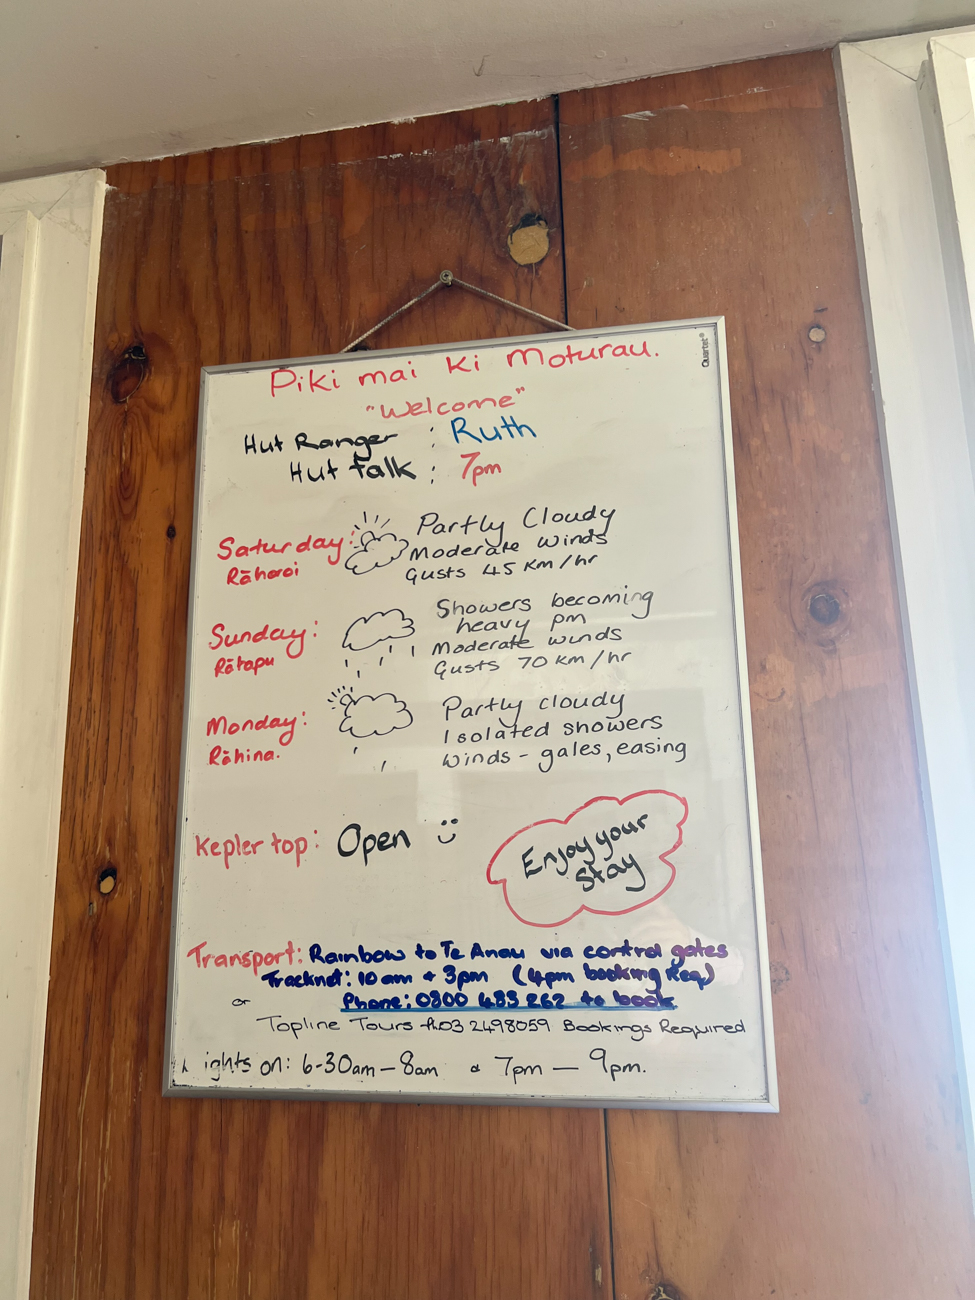 Quartet®
Piki mai ki Moturau.
"Welcome"
Hut Ranger : Ruth
Hut talk : 7pm
Saturday: Partly Cloudy
Rāhoroi Moderate winds
Gusts 45 km/hr
Sunday: Showers becoming
heavy pm
Rātapu Moderate winds
Gusts 70 km/hr
Monday: Partly cloudy
Isolated showers
Rāhina. Winds - gales, easing
Kepler top: Open
Enjoy your
stay
Transport: Rainbow to Te Anau via control gates
Tracknet: 10am & 3pm (4pm booking Req)
or Phone: 0800 483 262 to book
Topline Tours ph03 2498059 Bookings Required
ights on: 6-30am - 8am & 7pm - 9pm.